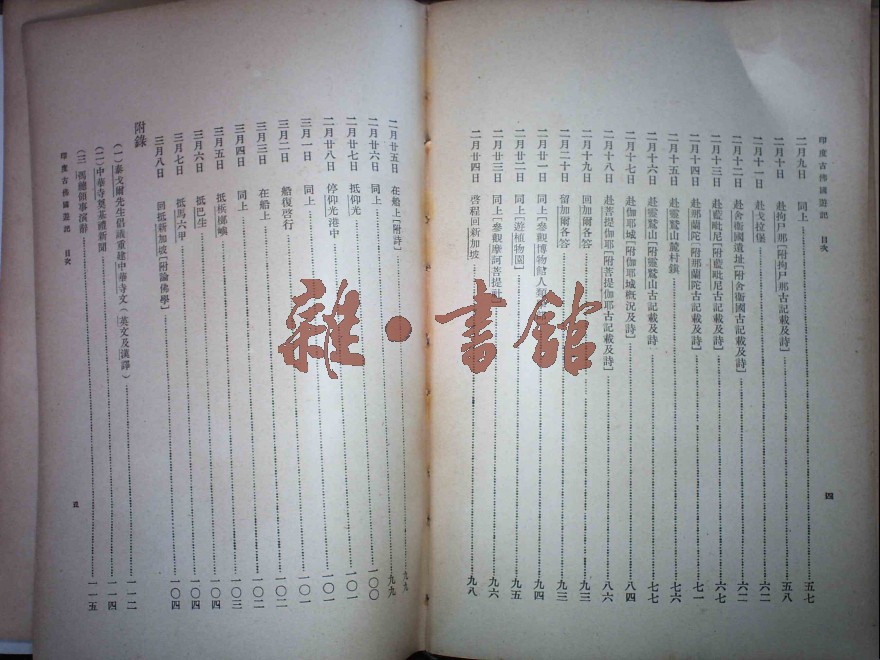 印度古佛國遊記 目次
四
二月九日 同上 五七
二月十日 赴拘尸那[附拘尸那古記載及詩] 五八
二月十一日 赴戈拉堡 六二
二月十二日 赴舍衞國遺址[附舍衞國古記載及詩] 六二
二月十三日 赴藍毗尼[附藍毗尼古記載及詩] 六七
二月十四日 赴那蘭陀[附那蘭陀古記載及詩] 七一
二月十五日 赴靈鷲山麓村鎮 七六
二月十六日 赴靈鷲山[附靈鷲山古記載及詩 七七
二月十七日 赴伽耶城[附伽耶城概況及詩] 八四
二月十八日 赴菩提伽耶[附菩提伽耶古記載及詩] 八六
二月十九日 回加爾各答 九三
二月二十日 留加爾各答 九三
二月廿一日 同上[參觀博物館人類 九四
二月廿二日 同上[遊植物園] 九五
二月廿三日 同上[參觀摩訶菩提社 九六
二月廿四日 啓程回新加坡 九八
二月廿五日 在船上[附詩] 九九
二月廿六日 同上 九九
二月廿七日 抵仰光 一〇〇
二月廿八日 停仰光港中 一〇一
三月一日 同上 一〇一
三月二日 船復啓行 一〇二
三月三日 在船上 一〇二
三月四日 同上 一〇三
三月五日 抵檳榔嶼 一〇四
三月六日 抵巴生 一〇四
三月七日 抵馬六甲 一〇四
三月八日 回抵新加坡[附論佛學]
附錄
(一)泰戈爾先生倡議重建中華寺文(英文及漢譯) 一一二
(二)中華寺奠基禮新聞 一一四
(三)馮總領事演辭 一一五
印度古佛國遊記 目次
五
雜·書館